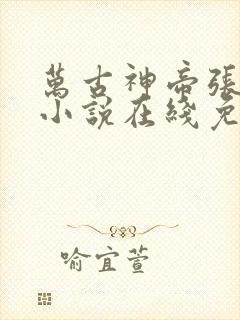 萬古神帝張
小說在綫免
喻宜萱